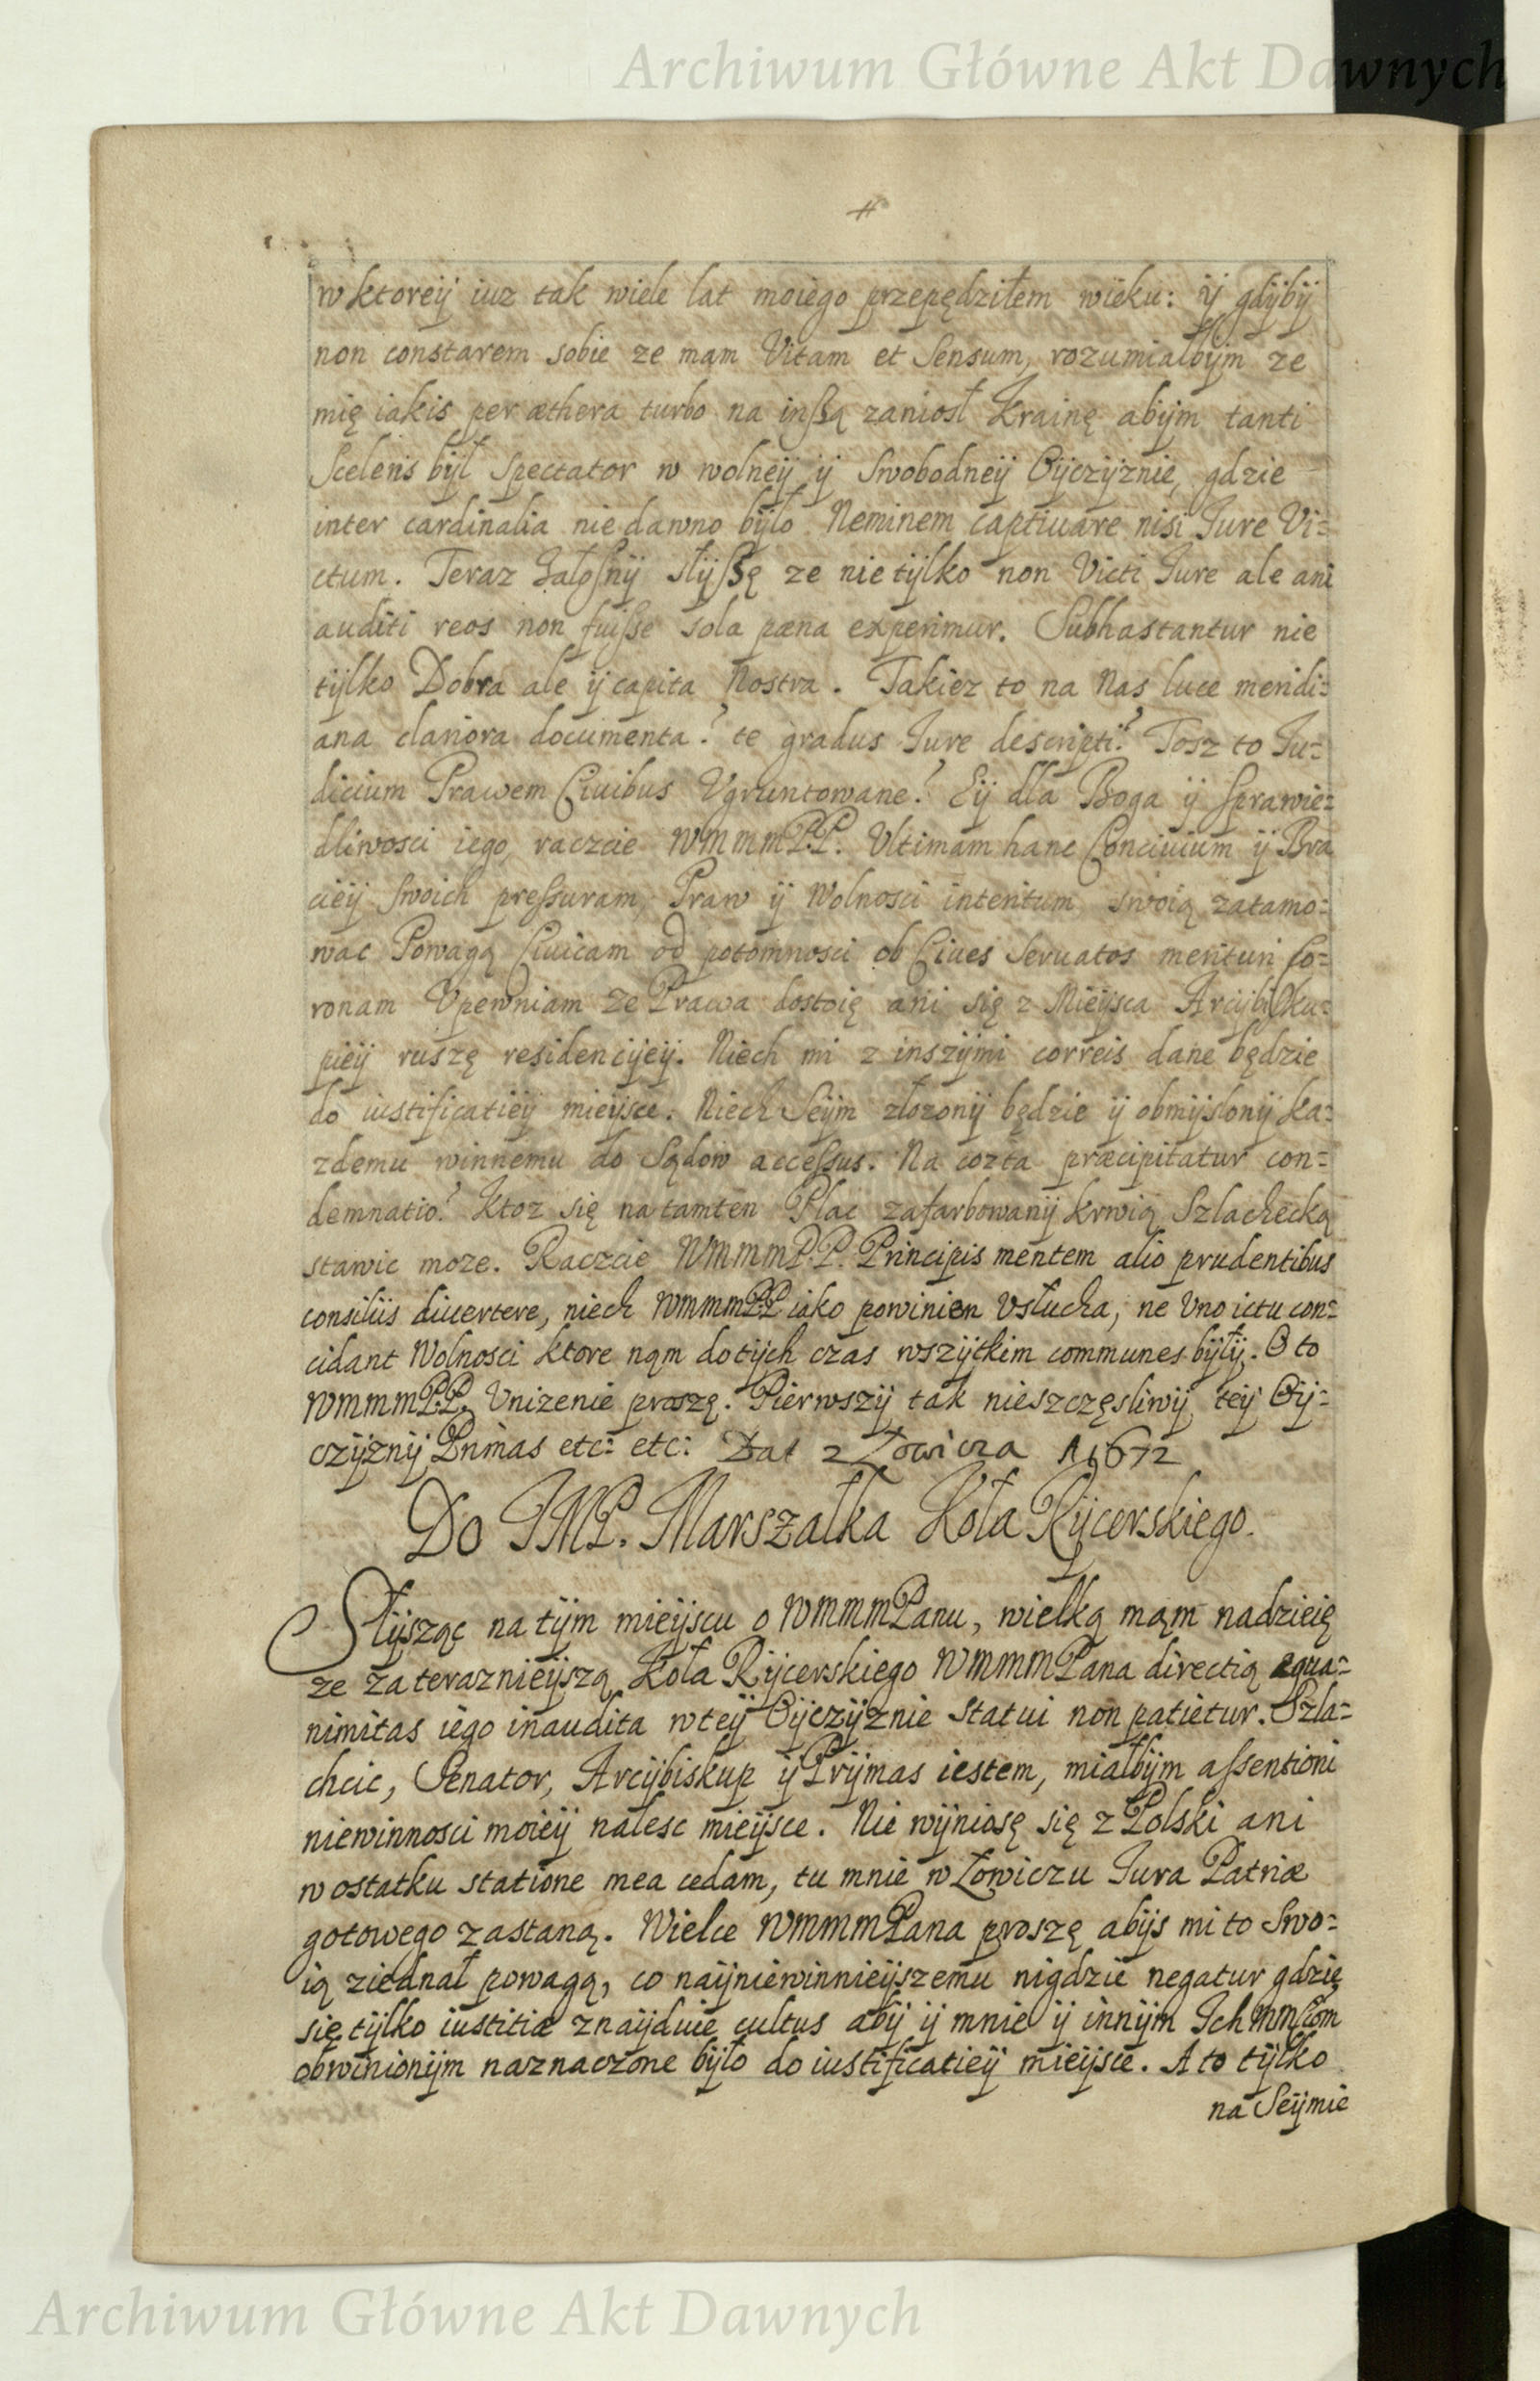 Archiwum Główne Akt Dawnych
w ktoreÿ iuz tak wiele lat moiego przepędziłem wieku: ÿ gdÿbÿ
non constarem sobie ze mam Vitam et Sensum, rozumiałbÿm ze
mię iakis per æthera turbo na inßą zaniosł Krainę abÿm tanti
Sceleris bÿł Spectator w wolneÿ ÿ Swobodneÿ Oÿczÿznie, gdzie
inter cardinalia nie dawno bÿło Neminem captiuare nisi Jure Vi=
ctum. Teraz Załosnÿ słÿßę ze nie tÿlko non Victi Jure ale ani
auditi reos non fuisse sola pæna experimur. Subhastantur nie
tÿlko Dobra ale ÿ capita Nostra. Takiez to na Nas luce meridi=
ana clariora documenta? te gradus Jure descripti? Tosz to Ju=
dicium Prawem Ciuibus Vgruntowane? Eÿ dla Boga ÿ sprawie=
dliwosci iego, raczcie WMMMPP. Vltimam hanc Conciuium ÿ Bra
cieÿ swoich pressuram, Praw ÿ Wolnosci interitum swoią zatamo=
wac Powagą Ciuicam od potomnosci ob Ciues Seruatos merituri Co=
ronam Vpewniam ze Prawa dostoię ani się z Mieÿsca Arcÿbisku=
pieÿ ruszę residencÿeÿ. Niech mi z inszÿmi correis dane będzie
do iustificatieÿ mieÿsce. Niech Seÿm złozonÿ będzie ÿ obmÿslonÿ ka=
zdemu winnemu do Sądow accessus. Na cozta præcipitatur con=
demnatio? Ktoz się na tamten Plac zafarbowanÿ krwią Szlachecką
stawic moze. Raczcie WMMMP.P. Principis mentem alio prudentibus
consiliis diuertere, niech WMMMPP iako powinien Vsłucha, ne Vno ictu con=
cidant Wolnosci ktore nąm dotÿch czas wszÿtkim communes bÿłÿ. O to
WMMMP.P. Vnizenie proszę. Pierwszÿ tak nieszczęsliwÿ teÿ Oÿ=
czÿznÿ Primas etc: etc: Dat z Łowicza A 1672
Do JMP. Marszałka Koła Rÿcerskiego.
Słÿsząc na tÿm mieÿscu o WMMMPanu, wielką mąm nadzieię
ze za terazniejszą Koła Rÿcerskiego WMMMPana directią equa=
nimitas iego inaudita w teÿ Oÿczÿznie statui non patietur. Szla=
chcic, Senator, Arcÿbiskup ÿ Prÿmas iestem, miałbÿm assentioni
niewinnosci moieÿ nalesc mieÿsce. Nie wÿniosę się z Polski ani
w ostatku statione mea cedam, tu mnie w Łowiczu Jura Patriæ
gotowego zastaną. Wielce WMMMPana proszę abÿs mi to Swo=
ią ziednał powagą, co naÿniewinnieÿszemu nigdzie negatur gdzie
się tÿlko iustitiæ znaÿduie cultus abÿ ÿ mnie ÿ innÿm
obwinionÿm naznaczone bÿło do iustificatieÿ mieÿsce. A to tÿlko
na Seÿmie
Archiwum Główne Akt Dawnych